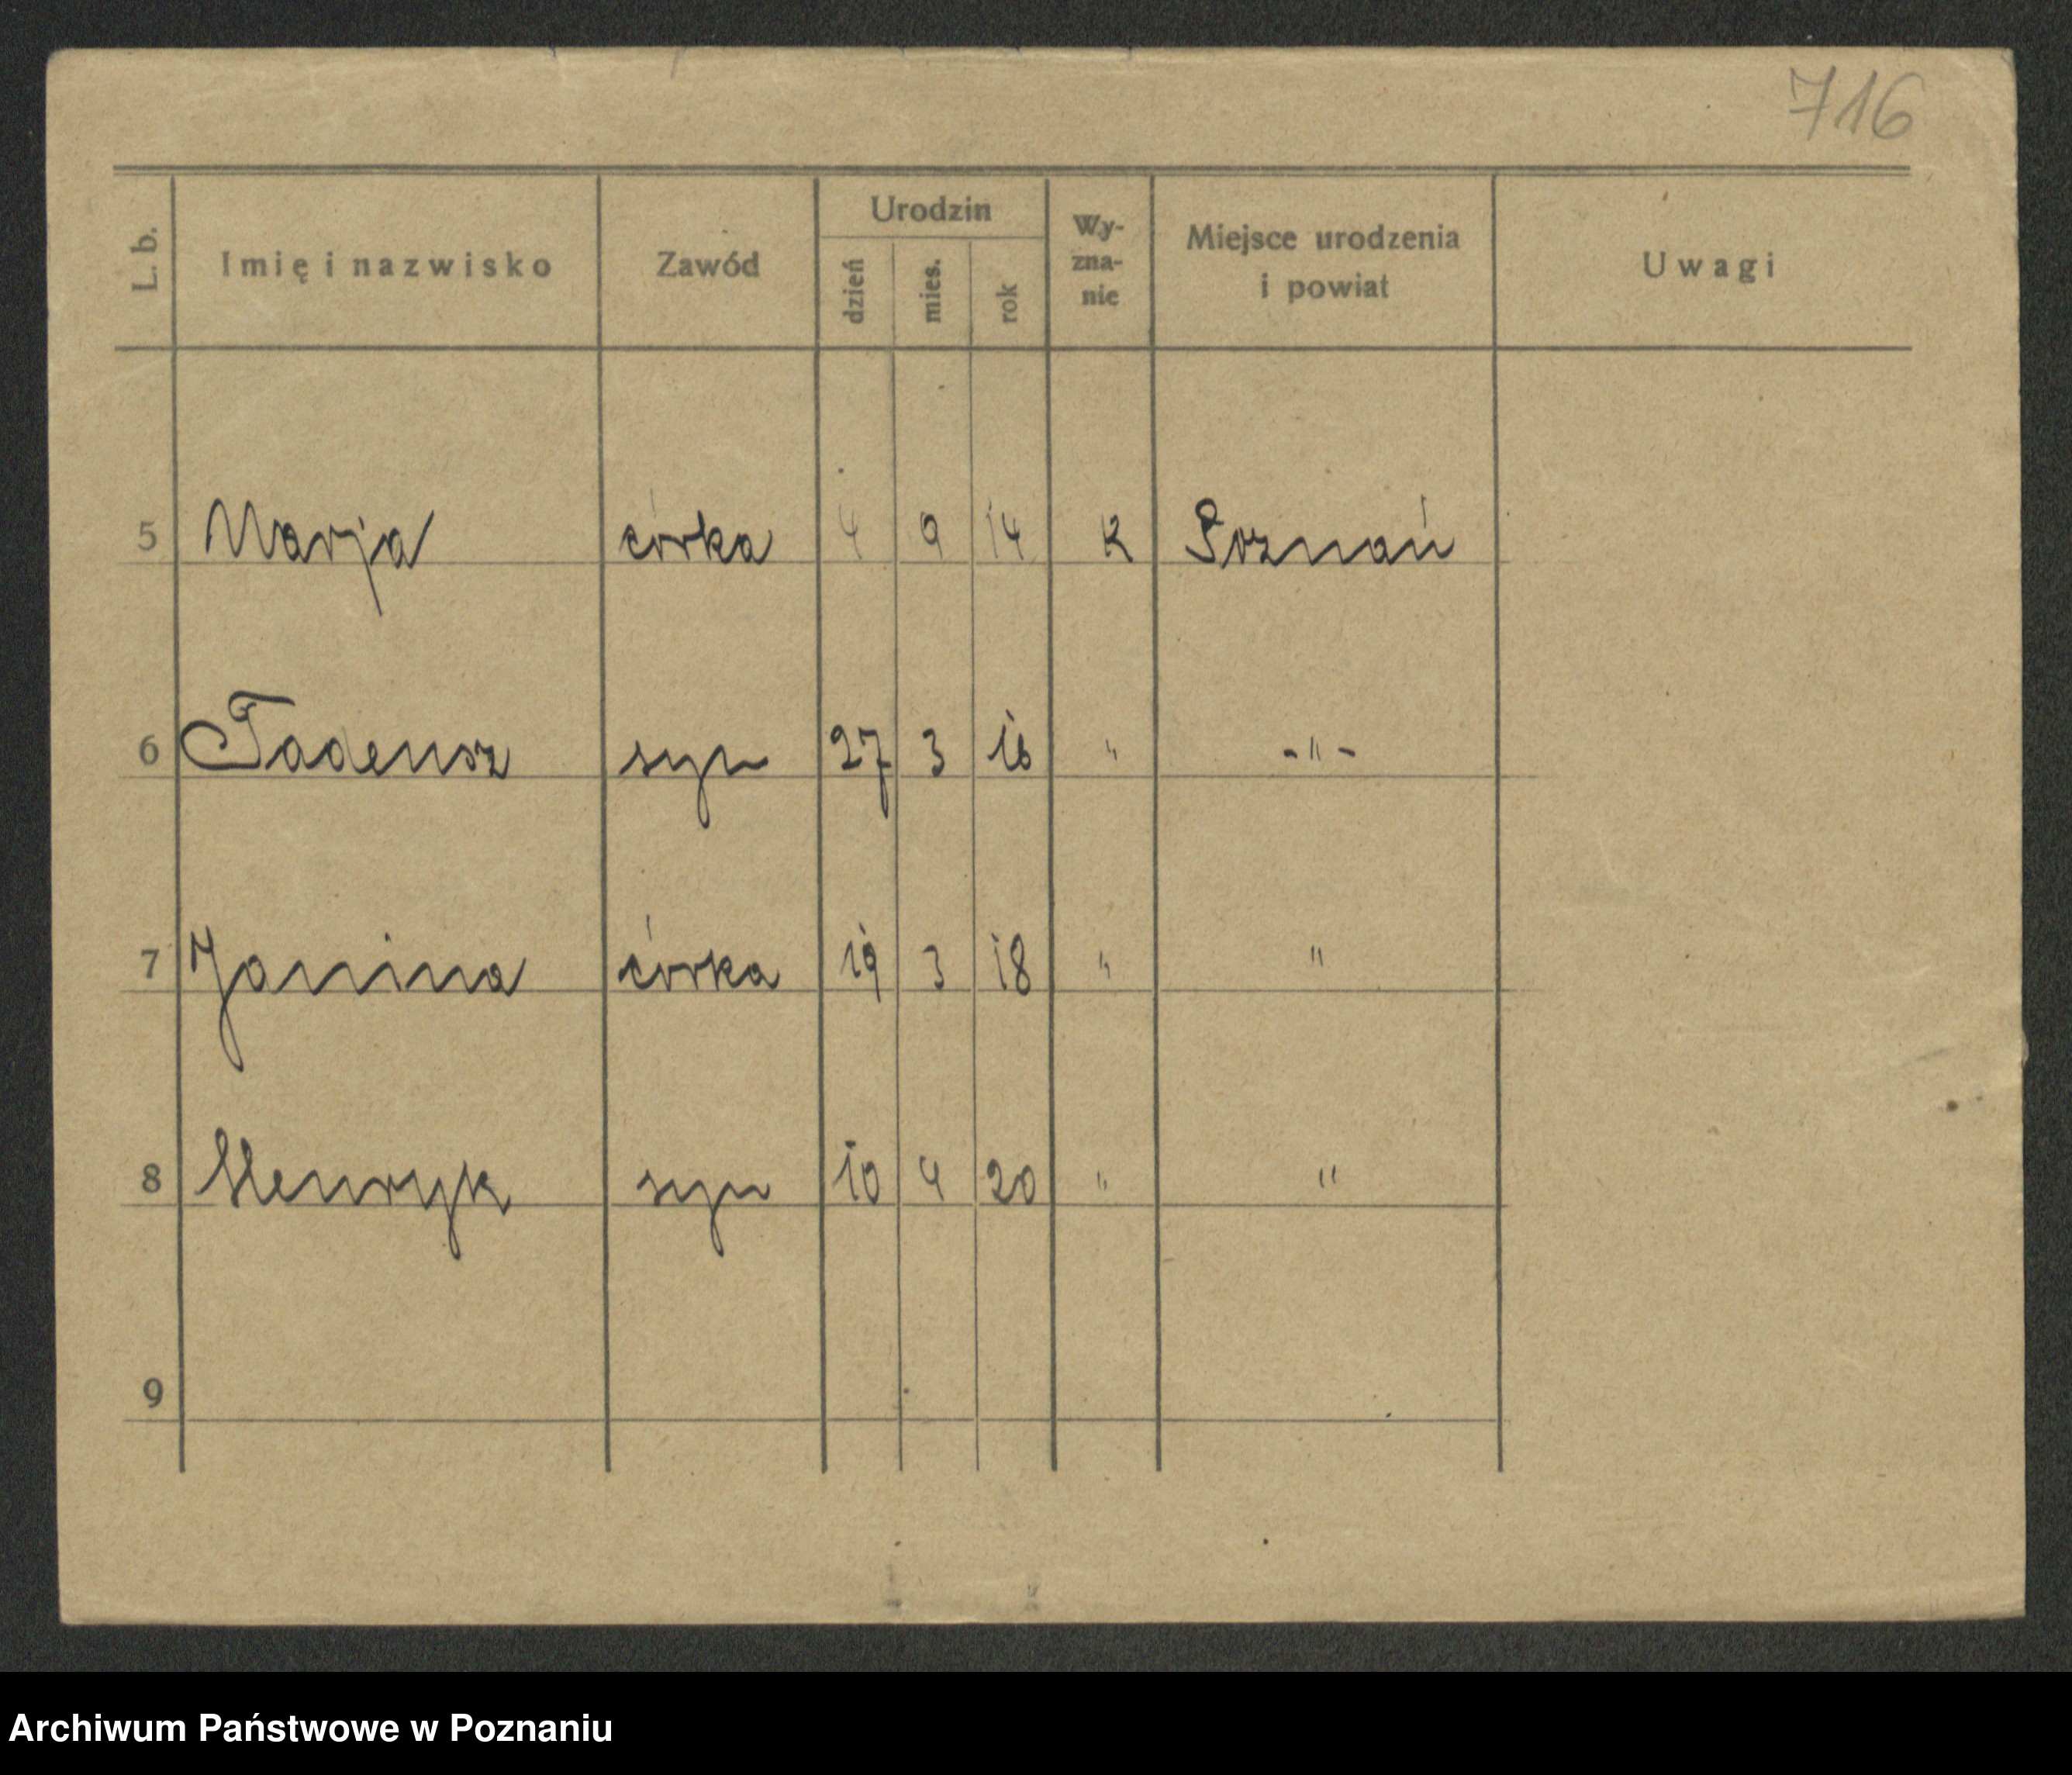 716
L. b. Imię i nazwisko Zawód Urodzin dzień mies. rok Wy-zna-nie Miejsce urodzenia i powiat Uwagi
5 Marja córka 4 9 14 K Poznań
6 Tadeusz syn 27 3 16 " -"-
7 Janina córka 19 3 18 " "
8 Henryk syn 10 4 20 " "
9
Archiwum Państwowe w Poznaniu